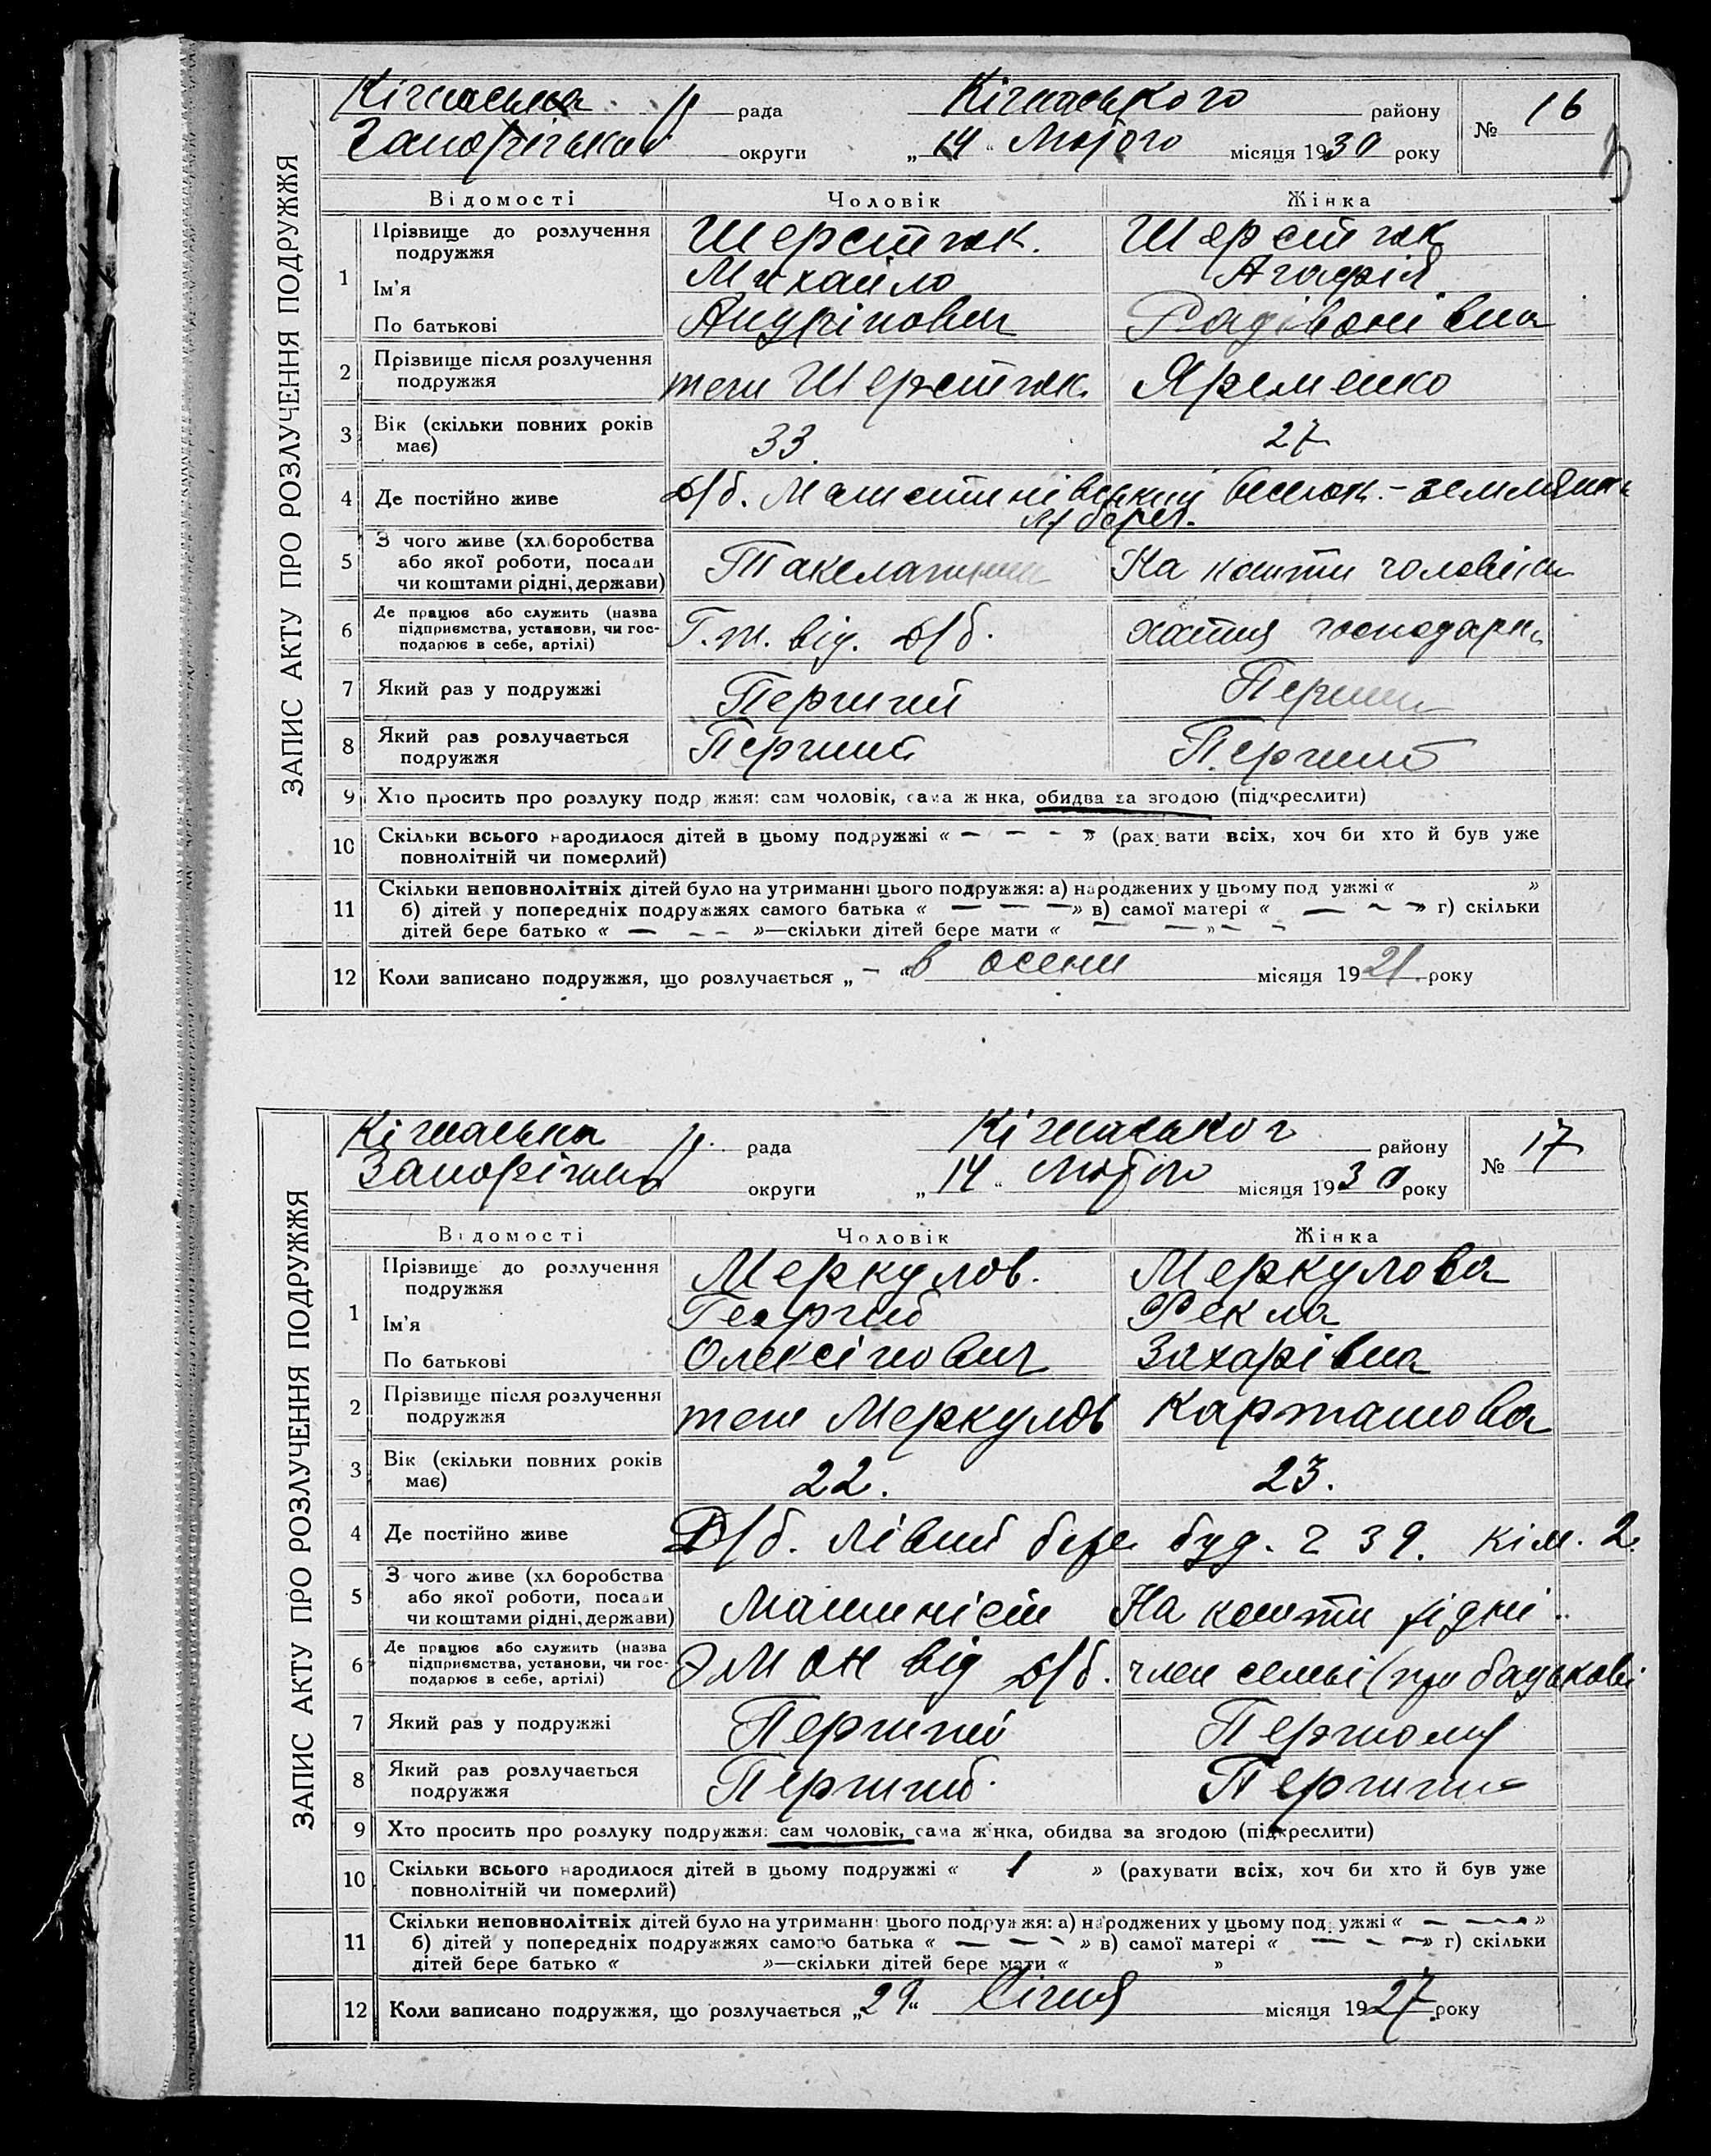 ЗАПИС АКТУ ПРО РОЗЛУЧЕННЯ ПОДРУЖЖЯ
Кічкаська р. рада Кічкаського району № 16
Запорізької округи „14“ Лютого місяця 1930 року
Відомості Чоловік Жінка
1 Прізвище до розлучення подружжя Шерстюк. Шерстюк
Ім’я Михайло Агафія
По батькові Андрійович Радівонівна
2 Прізвище після розлучення подружжя теж Шерстюк. Яременко
3 Вік (скільки повних років має) 33. 27
4 Де постійно живе Д/б.
5 З чого живе (хліборобства або якої роботи, посади чи коштами рідні, держави) На кошти чоловіка
6 Де працює або служить (назва підприємства, установи, чи господарює в себе, артілі) від. Д/б. хатня господарка
7 Який раз у подружжі Перший Перший
8 Який раз розлучається подружжя Перший Перший
9 Хто просить про розлуку подружжя: сам чоловік, сама жінка, обидва за згодою (підкреслити)
10 Скільки всього народилося дітей в цьому подружжі « — — — » (рахувати всіх, хоч би хто й був уже
повнолітній чи померлий)
11 Скільки неповнолітніх дітей було на утриманні цього подружжя: а) народжених у цьому подружжі « »
б) дітей у попередніх подружжях самого батька « — — — » в) самої матері « — — — » г) скільки
дітей бере батько « — — — »—скільки дітей бере мати « — — » — —
12 Коли записано подружжя, що розлучається „ — “ в осени місяця 1921 року
ЗАПИС АКТУ ПРО РОЗЛУЧЕННЯ ПОДРУЖЖЯ
Кічкаська р. рада Кічкаського району № 17
Запоріжської округи „14“ Лютого місяця 1930 року
Відомості Чоловік Жінка
1 Прізвище до розлучення подружжя Меркулов. Меркулова
Ім’я Георгий Фекла
По батькові Олексійович Захарівна
2 Прізвище після розлучення подружжя теж Меркулов Карташова
3 Вік (скільки повних років має) 22. 23.
4 Де постійно живе Д/б. Лівий берег буд. ч 39. кім. 2.
5 З чого живе (хліборобства або якої роботи, посади чи коштами рідні, держави) Машиніст На кошти рідні
6 Де працює або служить (назва підприємства, установи, чи господарює в себе, артілі) від Д/б. член семьі (при батькові
7 Який раз у подружжі Перший Першому
8 Який раз розлучається подружжя Перший. Перший
9 Хто просить про розлуку подружжя: сам чоловік, сама жінка, обидва за згодою (підкреслити)
10 Скільки всього народилося дітей в цьому подружжі « 1 » (рахувати всіх, хоч би хто й був уже
повнолітній чи померлий)
11 Скільки неповнолітніх дітей було на утриманні цього подружжя: а) народжених у цьому подружжі « — — — »
б) дітей у попередніх подружжях самого батька « — — — » в) самої матері « — — — » г) скільки
дітей бере батько « »—скільки дітей бере мати « »
12 Коли записано подружжя, що розлучається „29“ Січня місяця 1927 року